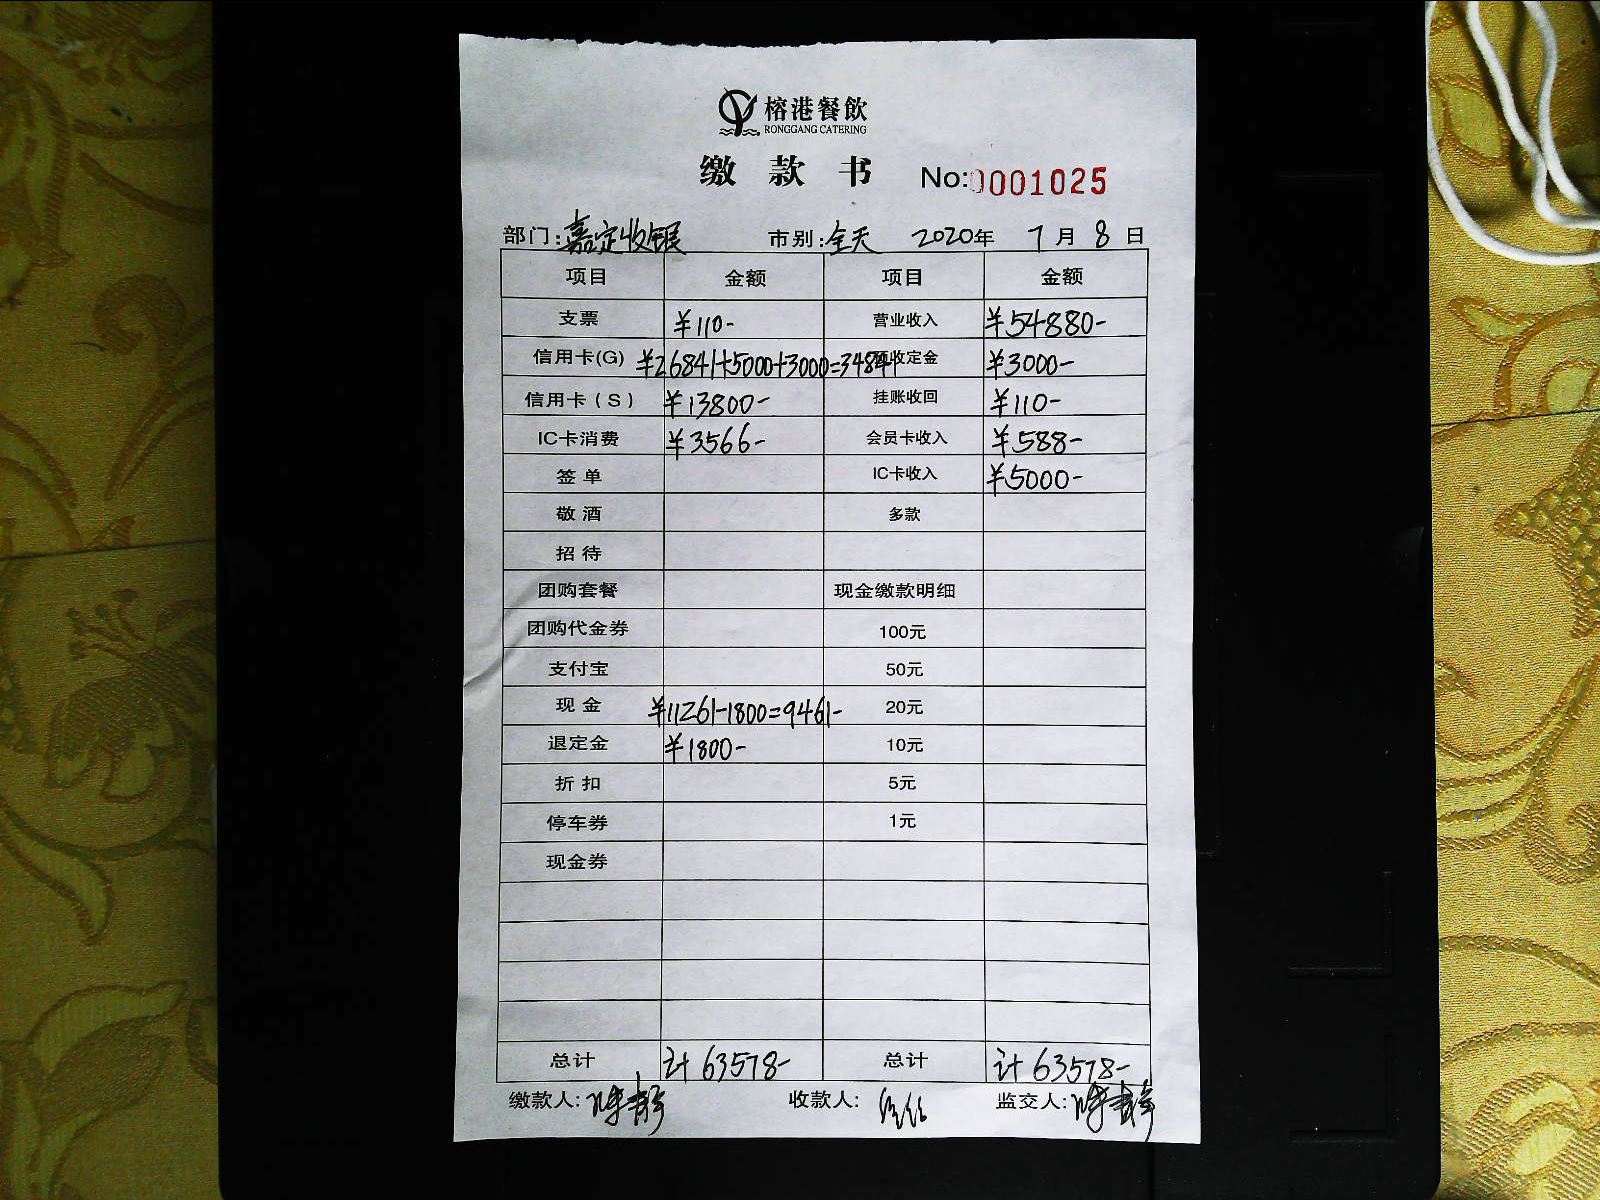 榕港餐飲
RONGGANG CATERING
缴 款 书 No:0001025
部门:嘉定收银 市别:全天 2020年 7月 8日
项目 金额 项目 金额
支票 ¥110- 营业收入 ¥54880-
信用卡(G) ¥26841+5000+3000=34841 预收定金 ¥3000-
信用卡(S) ¥13800- 挂账收回 ¥110-
IC卡消费 ¥3566- 会员卡收入 ¥588-
签单 IC卡收入 ¥5000-
敬酒 多款
招待
团购套餐 现金缴款明细
团购代金券 100元
支付宝 50元
现金 ¥11261-1800=9461- 20元
退定金 ¥1800- 10元
折扣 5元
停车券 1元
现金券
总计 计 63578- 总计 计 63578-
缴款人: 收款人: 监交人: